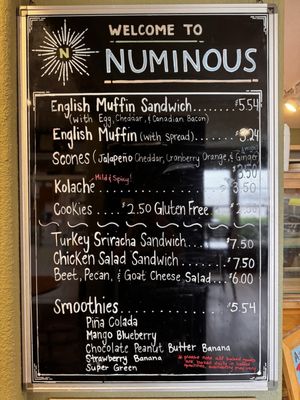 WELCOME TO
N
NUMINOUS
English Muffin Sandwich...... $5.54
(with Egg, Cheddar, & Canadian Bacon)
English Muffin (with Spread)...
Scones (Jalapeño Cheddar, Cranberry Orange, & Ginger
$3.50
Mild & Spicy!
Kolache ............ 3.50
Cookies .... $2.50 Gluten Free
Turkey Sriracha Sandwich.... $7.50
Chicken Salad Sandwich..... $7.50
Beet, Pecan, & Goat Cheese Salad... $6.00
Smoothies .............. $5.54
Piña Colada
Mango Blueberry
Chocolate Peanut Butter Banana
Strawberry Banana
Super Green